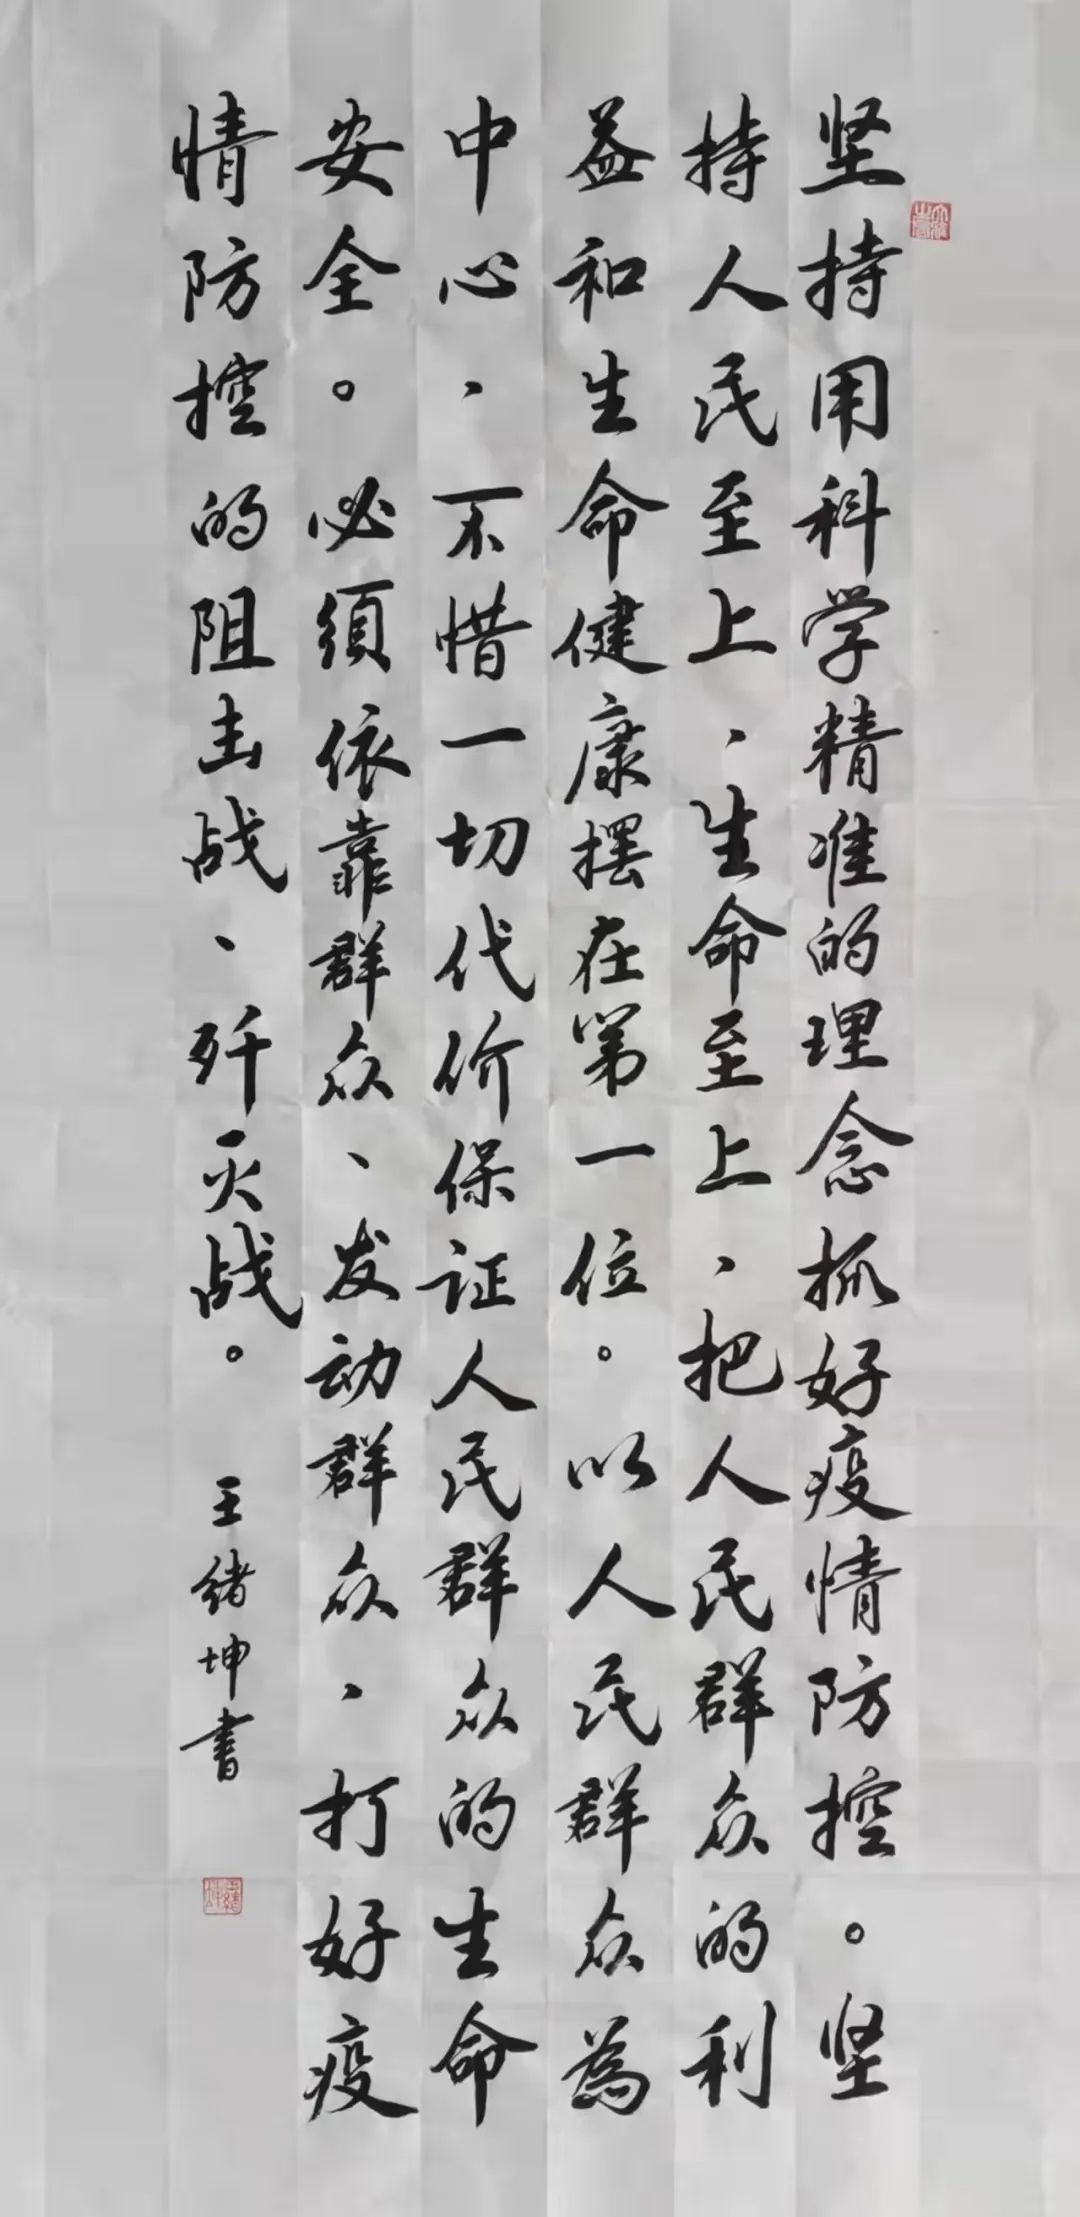 坚持用科学精准的理念抓好疫情防控。坚
持人民至上、生命至上、把人民群众的利
益和生命健康摆在第一位。以人民群众為
中心、不惜一切代价保证人民群众的生命
安全。必须依靠群众、发动群众、打好疫
情防控的阻击战、歼灭战。
王绪坤书